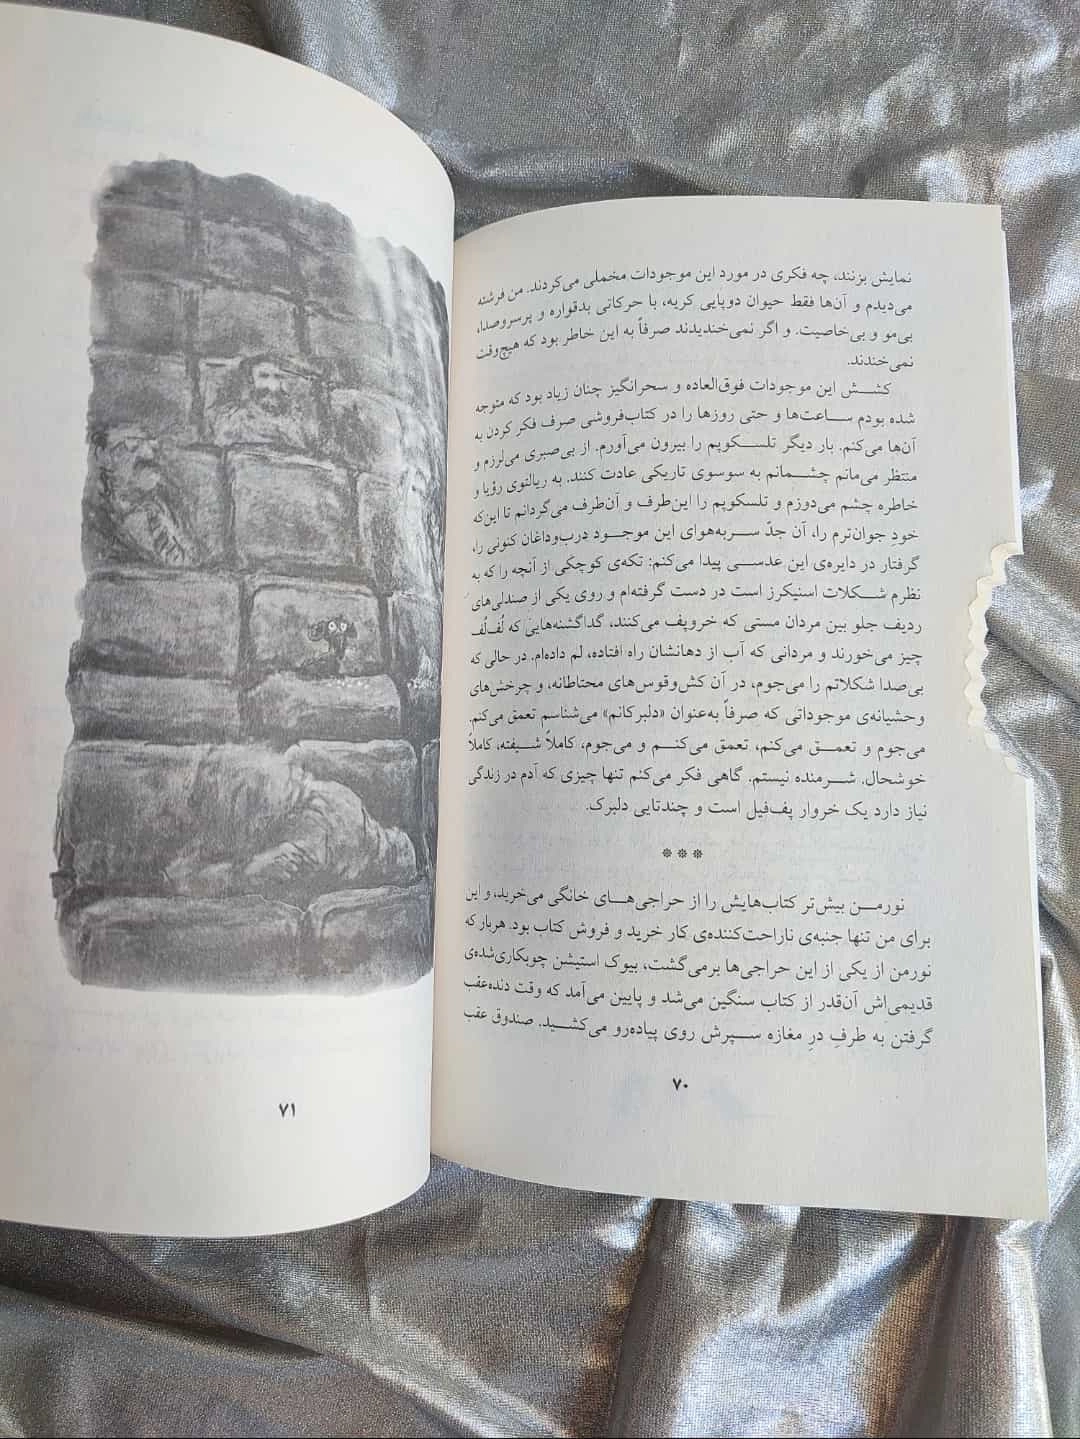 نمایش بزنند، چه فکری در مورد این موجودات مخملی می‌کردند. من فرشته
می‌دیدم و آن‌ها فقط حیوان دوپایی کریه، با حرکاتی بدقواره و پرسروصدا،
بی‌مو و بی‌خاصیت. و اگر نمی‌خندیدند صرفاً به این خاطر بود که هیچ‌وقت
نمی‌خندند.
کشش این موجودات فوق‌العاده و سحرانگیز چنان زیاد بود که متوجه
شده بودم ساعت‌ها و حتی روزها را در کتاب‌فروشی صرف فکر کردن به
آن‌ها می‌کنم. بار دیگر تلسکوپم را بیرون می‌آورم. از بی‌صبری می‌لرزم و
منتظر می‌مانم چشمانم به سوسوی تاریکی عادت کنند. به ریالتوی رؤیا و
خاطره چشم می‌دوزم و تلسکوپم را این‌طرف و آن‌طرف می‌گردانم تا این‌که
خودِ جوان‌ترم را، آن جدّ سربه‌هوای این موجود درب‌وداغان کنونی را،
گرفتار در دایره‌ی این عدسی پیدا می‌کنم: تکه‌ی کوچکی از آنچه را که به
نظرم شکلات اسنیکرز است در دست گرفته‌ام و روی یکی از صندلی‌های
ردیف جلو بین مردان مستی که خروپف می‌کنند، گداگشنه‌هایی که لُف‌لُف
چیز می‌خورند و مردانی که آب از دهانشان راه افتاده، لم داده‌ام. در حالی که
بی‌صدا شکلاتم را می‌جوم، در آن کش‌وقوس‌های محتاطانه، و چرخش‌های
وحشیانه‌ی موجوداتی که صرفاً به‌عنوان «دلبرکانم» می‌شناسم تعمق می‌کنم.
می‌جوم و تعمق می‌کنم، تعمق می‌کنم و می‌جوم، کاملاً شیفته، کاملاً
خوشحال. شرمنده نیستم. گاهی فکر می‌کنم تنها چیزی که آدم در زندگی
نیاز دارد یک خروار پف‌فیل است و چندتایی دلبرک.
***
نورمن بیش‌تر کتاب‌هایش را از حراجی‌های خانگی می‌خرید، و این
برای من تنها جنبه‌ی ناراحت‌کننده‌ی کار خرید و فروش کتاب بود. هربار که
نورمن از یکی از این حراجی‌ها برمی‌گشت، بیوک استیشن چوبکاری‌شده‌ی
قدیمی‌اش آن‌قدر از کتاب سنگین می‌شد و پایین می‌آمد که وقت دنده‌عقب
گرفتن به طرفِ درِ مغازه سپرش روی پیاده‌رو می‌کشید. صندوق عقب
۷۰
۷۱